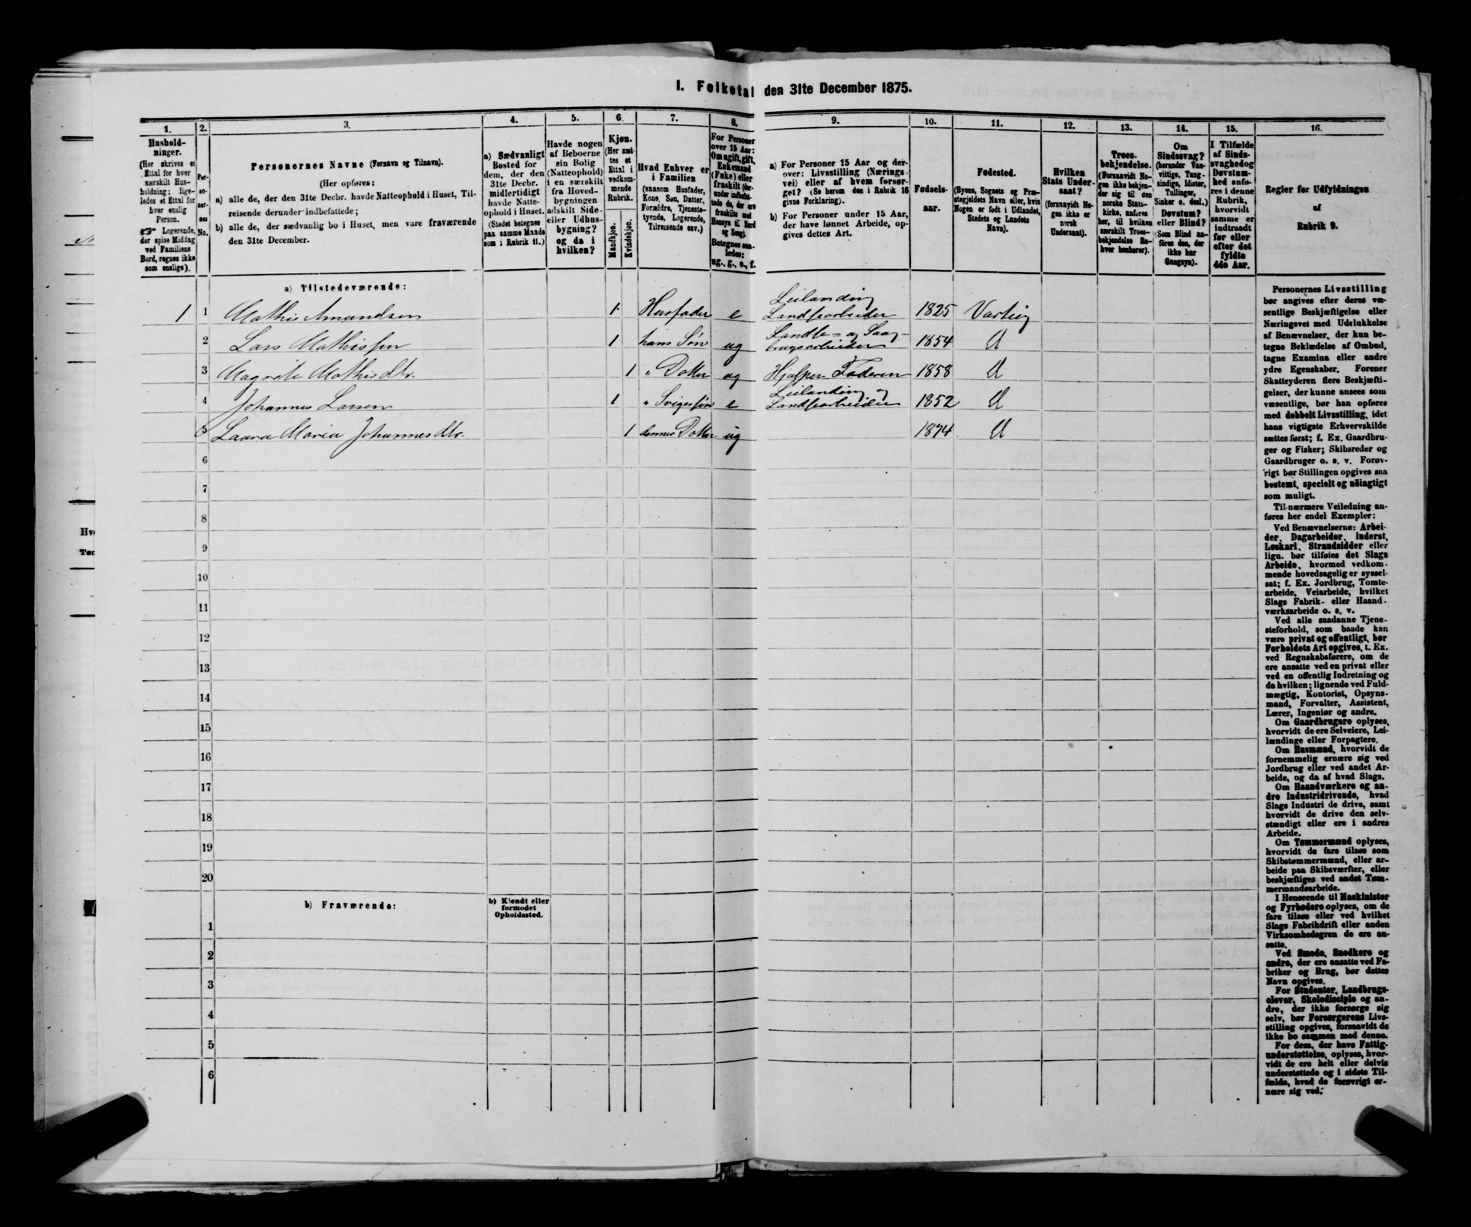 I. Folketal den 31te December 1875.
1.
Hushold-
ninger.
(Her skrives et
Ettal for hver
særskilt Hus-
holdning; lige-
ledes et Ettal for
hver enslig
Person.
☞ Logerende,
der spise Middag
ved Familiens
Bord, regnes ikke
som enslige).
2.
Per-
so-
ner-
nes
No.
3.
Personernes Navne (Fornavn og Tilnavn).
(Her opføres:
a) alle de, der den 31te Decbr. havde Natteophold i Huset, Til-
reisende derunder indbefattede;
b) alle de, der sædvanlig bo i Huset, men vare fraværende
den 31te December.
4.
a) Sædvanligt
Bosted for
dem, der den
31te Decbr.
midlertidigt
havde Natte-
ophold i Huset.
(Stedet betegnes
paa samme Maade
som i Rubrik 11.)
5.
Havde nogen
af Beboerne
sin Bolig
(Natteophold)
i en særskilt
fra Hoved-
bygningen
adskilt Side-
eller Udhus-
bygning?
og da i
hvilken?
6.
Kjøn.
(Her sæt-
tes et
Ettal i
vedkom-
mende
Rubrik.
Mandkjøn.
Kvindekjøn.
7.
Hvad Enhver er
i Familien
(saasom Husfader,
Kone, Søn, Datter,
Forældre, Tjeneste-
tyende, Logerende,
Tilreisende osv.)
8.
For Personer
over 15 Aar:
Om ugift, gift,
Enkemand
(Enke) eller
fraskilt
Betegnes saa-
ledes:
ug., g., e., f.
9.
a) For Personer 15 Aar og der-
over: Livsstilling (Nærings-
vei) eller af hvem forsør-
get? (Se herom den i Rubrik 16
givne Forklaring).
b) For Personer under 15 Aar,
der have lønnet Arbeide, op-
gives dettes Art.
10.
Fødsels-
aar.
11.
Fødested.
(Byens, Sognets og Præ-
stegjeldets Navn eller, hvis
Nogen er født i Udlandet,
Stedets og Landets
Navn).
12.
Hvilken
Stats Under-
saat?
(forsaavidt No-
gen ikke er
norsk
Undersaat).
13.
Troes-
bekjendelse.
(Forsaavidt No-
gen ikke bekjen-
der sig til den
norske Stats-
kirke, anføres
her, til hvilken
særskilt Troes-
bekjendelse En-
hver henhører).
14.
Om
Sindssvag?
(herunder Van-
vittige, Tung-
sindige, Idioter,
Tullinger,
Sinker o. desl.)
Døvstum?
eller Blind?
(Som Blind an-
føres den, der
ikke har
Gangsyn).
15.
I Tilfælde
af Sinds-
svaghed og
Døvstum-
hed anfø-
res i denne
Rubrik,
hvorvidt
samme er
indtraadt
før eller
efter det
fyldte
4de Aar.
16.
Regler for Udfyldningen
af
Rubrik 9.
a) Tilstedeværende:
1 1 Mathis Amundsen 1 Husfader e Leilanding Landsforbeider 1825 Varteig
2 Lars Mathissen 1 hans Søn ug Landbr- og Saag- brugsarbeider 1854 d
3 Magrete Mathisdtr. 1 " Datter ug Hjælper Faderen 1858 d
4 Johannes Larsen 1 " Svigersøn e Leilanding og Landsforbeider 1852 d
5 Laura Maria Johannesdtr. 1 dennes Datter ug 1874 d
6
7
8
9
10
11
12
13
14
15
16
17
18
19
20
b) Fraværende:
b) Kjendt eller
formodet
Opholdssted.
1
2
3
4
5
6
Personernes Livsstilling
bør angives efter deres væ-
sentlige Beskjæftigelse eller
Næringsvei med Udelukkelse
af Benævnelser, der kun be-
tegne Beklædelse af Ombud,
tagne Examina eller andre
ydre Egenskaber. Forener
Skatteyderen flere Beskjæfti-
gelser, der kunne ansees som
væsentlige, bør han opføres
med dobbelt Livsstilling, idet
hans vigtigste Erhvervskilde
sættes først; f. Ex. Gaardbru-
ger og Fisker; Skibsreder og
Gaardbruger o. s. v. Forøv-
rigt bør Stillingen opgives saa
bestemt, specielt og nøiagtigt
som muligt.
Til nærmere Veiledning an-
føres her endel Exempler:
Ved Benævnelserne: Arbei-
der, Dagarbeider, Inderst,
Løskarl, Strandsidder eller
lign. bør tilføies det Slags
Arbeide, hvormed vedkom-
mende hovedsagelig er syssel-
sat; f. Ex. Jordbrug, Tomte-
arbeide, Veiarbeide, hvilket
Slags Fabrik- eller Haand-
værksarbeide o. s. v.
Ved alle saadanne Tjene-
steforhold, som baade kan
være privat og offentligt, bør
Forholdets Art opgives, t. Ex.
ved Regnskabsførere, om de
ere ansatte ved en privat eller
ved en offentlig Indretning og
da hvilken; lignende ved Fuld-
mægtig, Kontorist, Opsyns-
mand, Forvalter, Assistent,
Lærer, Ingeniør og andre.
Om Gaardbrugere oplyses,
hvorvidt de ere Selveiere, Lei-
lændinge eller Forpagtere.
Om Husmænd, hvorvidt de
fornemmelig ernære sig ved
Jordbrug eller ved andet Ar-
beide, og da af hvad Slags.
Om Haandværkere og an-
dre Industridrivende, hvad
Slags Industri de drive, samt
hvorvidt de drive den selv-
stændigt eller ere i andres
Arbeide.
Om Tømmermænd oplyses,
hvorvidt de fare tilsøs som
Skibstømmermænd, eller ar-
beide paa Skibsværfter, eller
beskjæftiges ved andet Tøm-
mermandsarbeide.
I Henseende til Maskinister
og Fyrbødere oplyses, om de
fare tilsøs eller ved hvilket
Slags Fabrikdrift eller anden
Virksomhedsgren de ere an-
satte.
Ved Smede, Snedkere og
andre, der ere ansatte ved Fa-
briker og Brug, bør dettes
Navn opgives.
For Studenter, Landbrugs-
elever, Skoledisciple og an-
dre, der ikke forsørge sig
selv, bør Forsørgerens Livs-
stilling opgives, forsaavidt de
ikke bo sammen med denne.
For dem, der have Fattig-
understøttelse, oplyses, hvor-
vidt de ere helt eller delvis
understøttede og i sidste Til-
fælde, hvad de forøvrigt er-
nære sig ved.